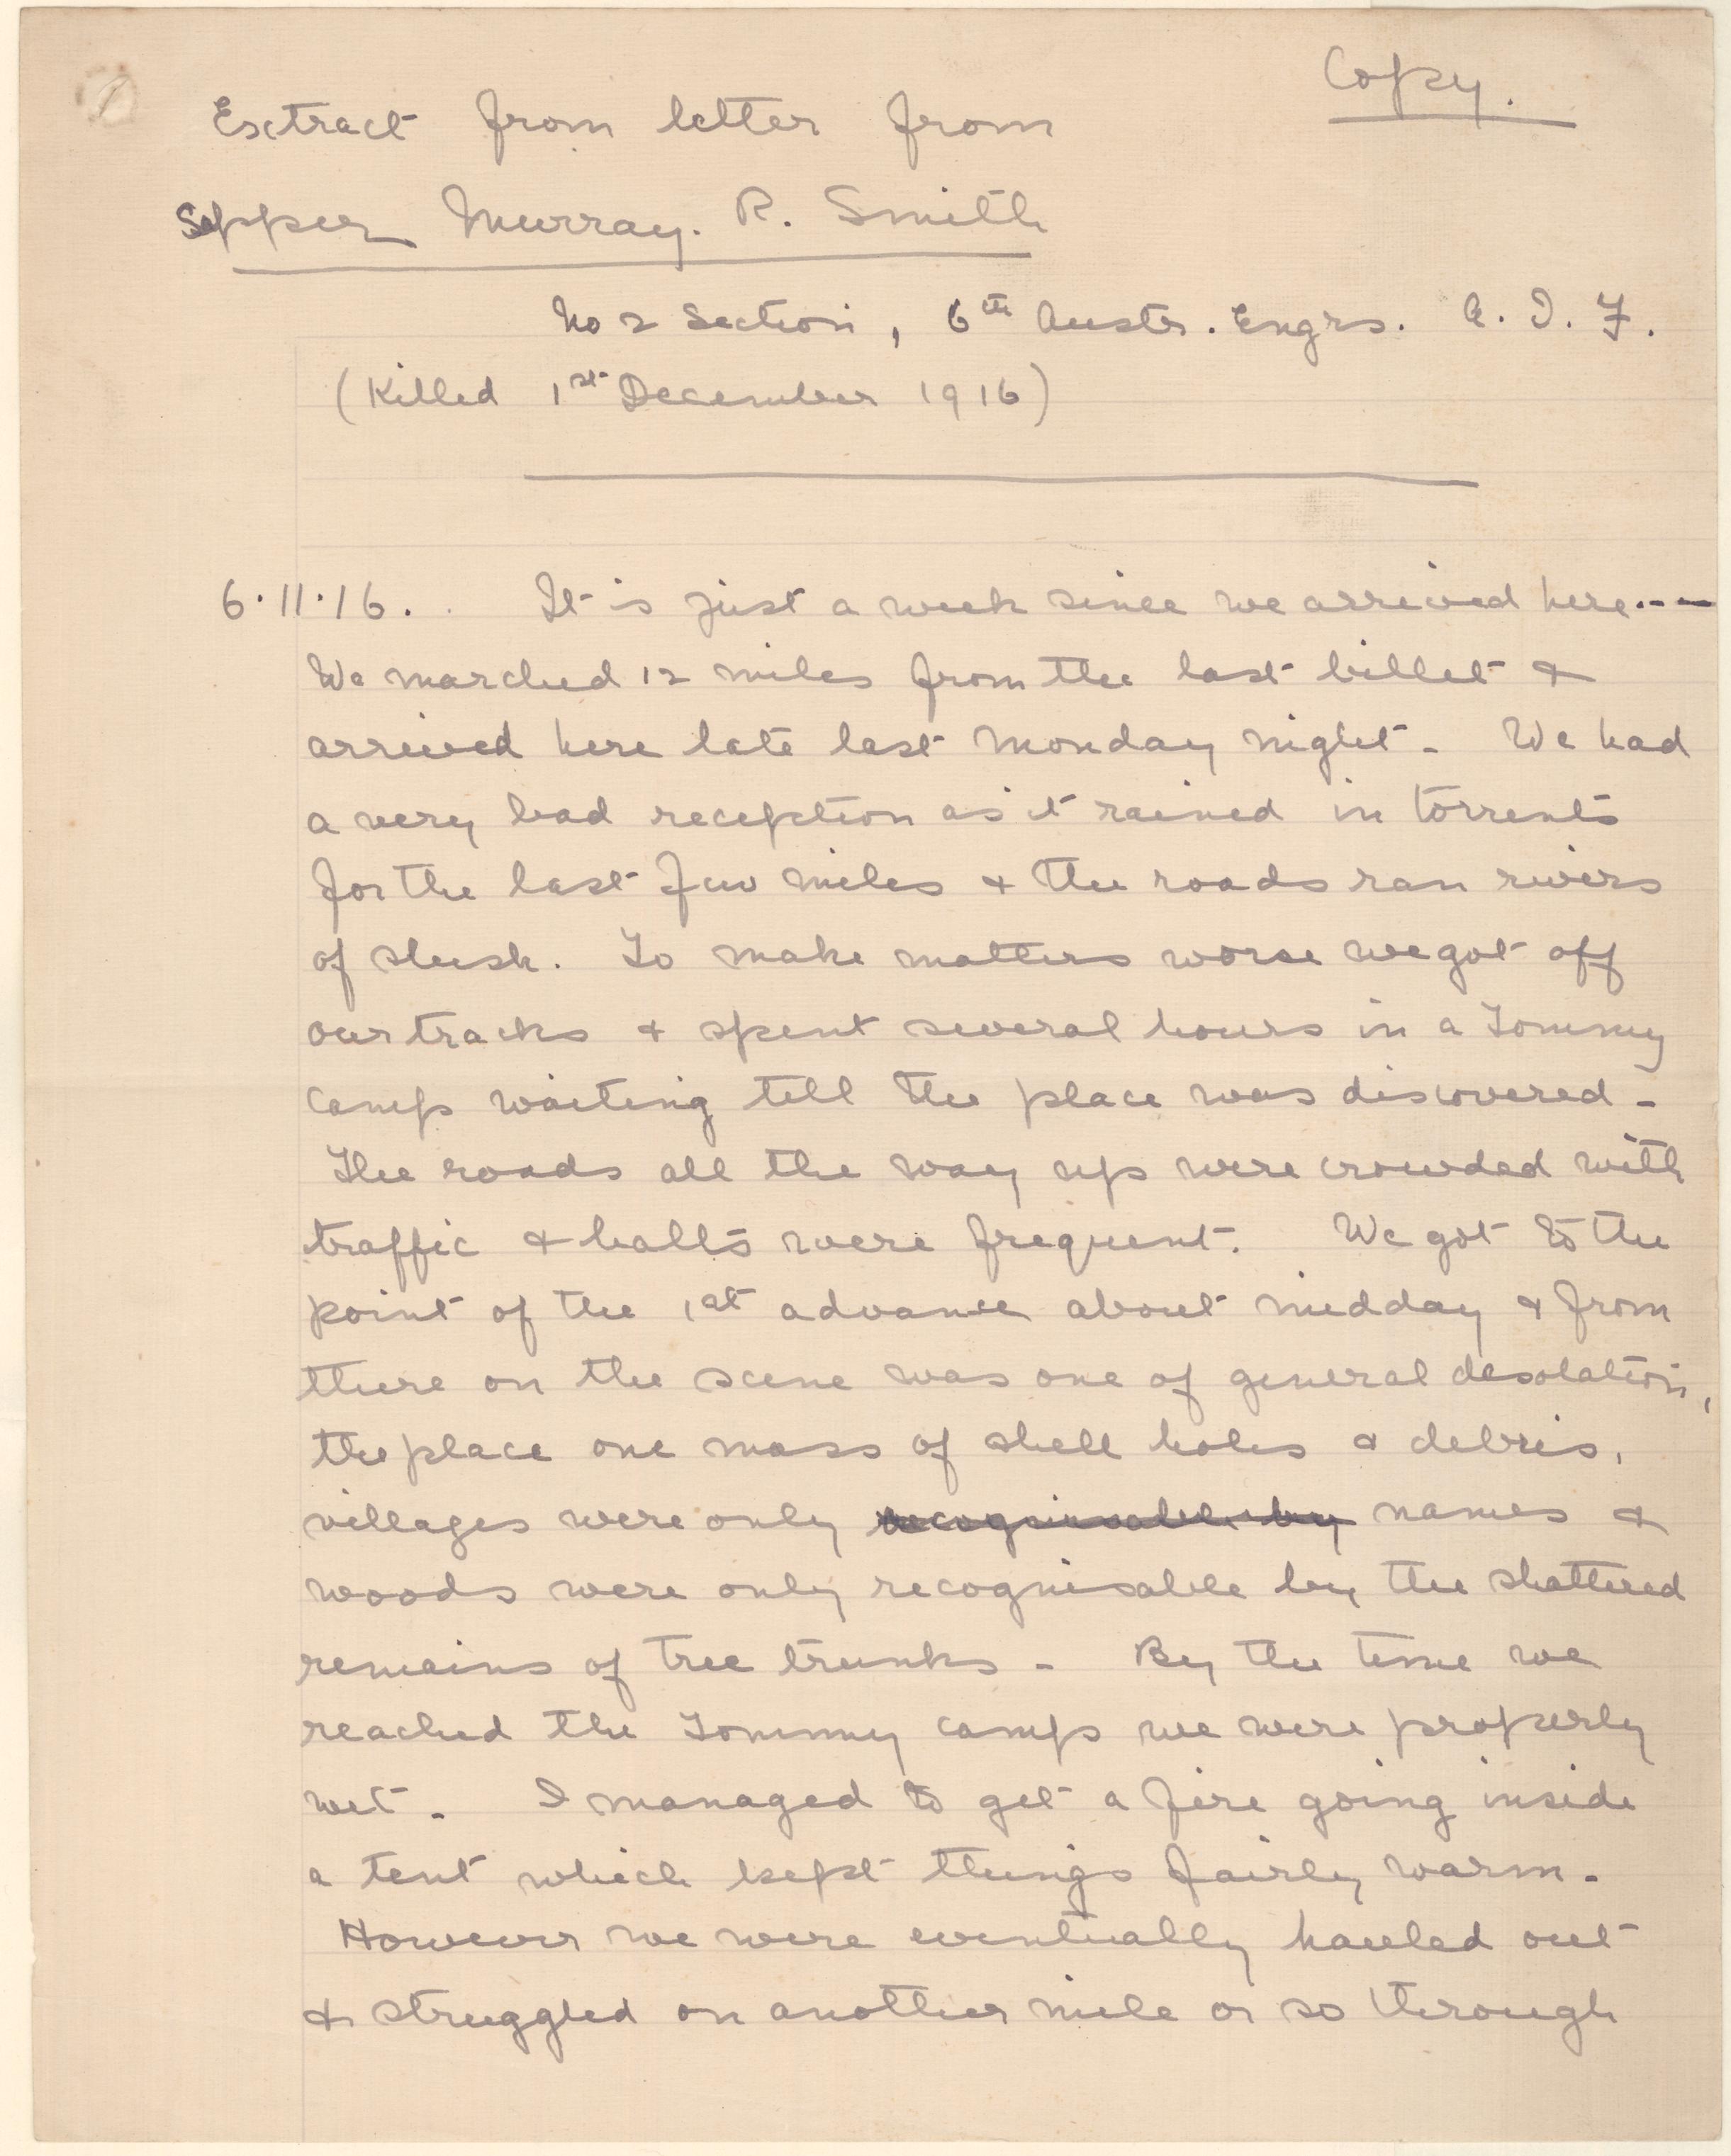 Copy.
Extract from letter from
Sapper Murray. R. Smith
No 2 Section, 6th Austr. Engrs. A. I. F.
(Killed 1st December 1916)
6.11.16. . It is just a week since we arrived here.---
We marched 12 miles from the last billet &
arrived here late last Monday night - We had
a very bad reception as it rained in torrents
for the last few miles & the roads ran rivers
of slush. To make matters worse we got off
our tracks & spent several hours in a Tommy
camp waiting till the place was discovered -
The roads all the way up were crowded with
traffic & halts were frequent. We got to the
point of the 1st advance about midday & from
there on the scene was one of general desolation,
the place one mass of shell holes & debris,
villages were only recognisable by names &
woods were only recognisable by the shattered
remains of tree trunks - By the time we
reached the Tommy camp we were properly
wet - I managed to get a fire going inside
a tent which kept things fairly warm -
However we were eventually hauled out
& struggled on another mile or so through